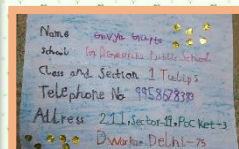 Name Govya Gupta
School Public School
Class and Section 1 Tulips
Telephone No
Address 211, Sector-19, Pocket-3
Dwarka Delhi-75